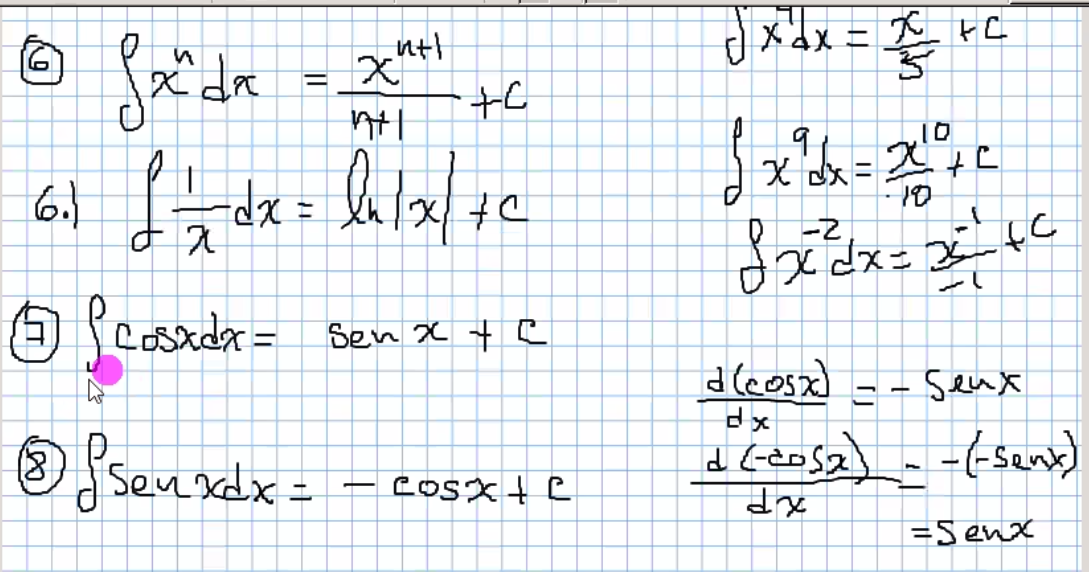 6 ∫ x^n dx = x^(n+1)/(n+1) + C
6.1 ∫ 1/x dx = ln|x| + C
7 ∫ cosx dx = sen x + C
8 ∫ sen x dx = - cosx + C
∫ x^4 dx = x/5 + C
∫ x^9 dx = x^10/10 + C
∫ x^-2 dx = x^-1/-1 + C
d(cosx)/dx = - senx
d(-cosx)/dx = -(-senx)
= senx